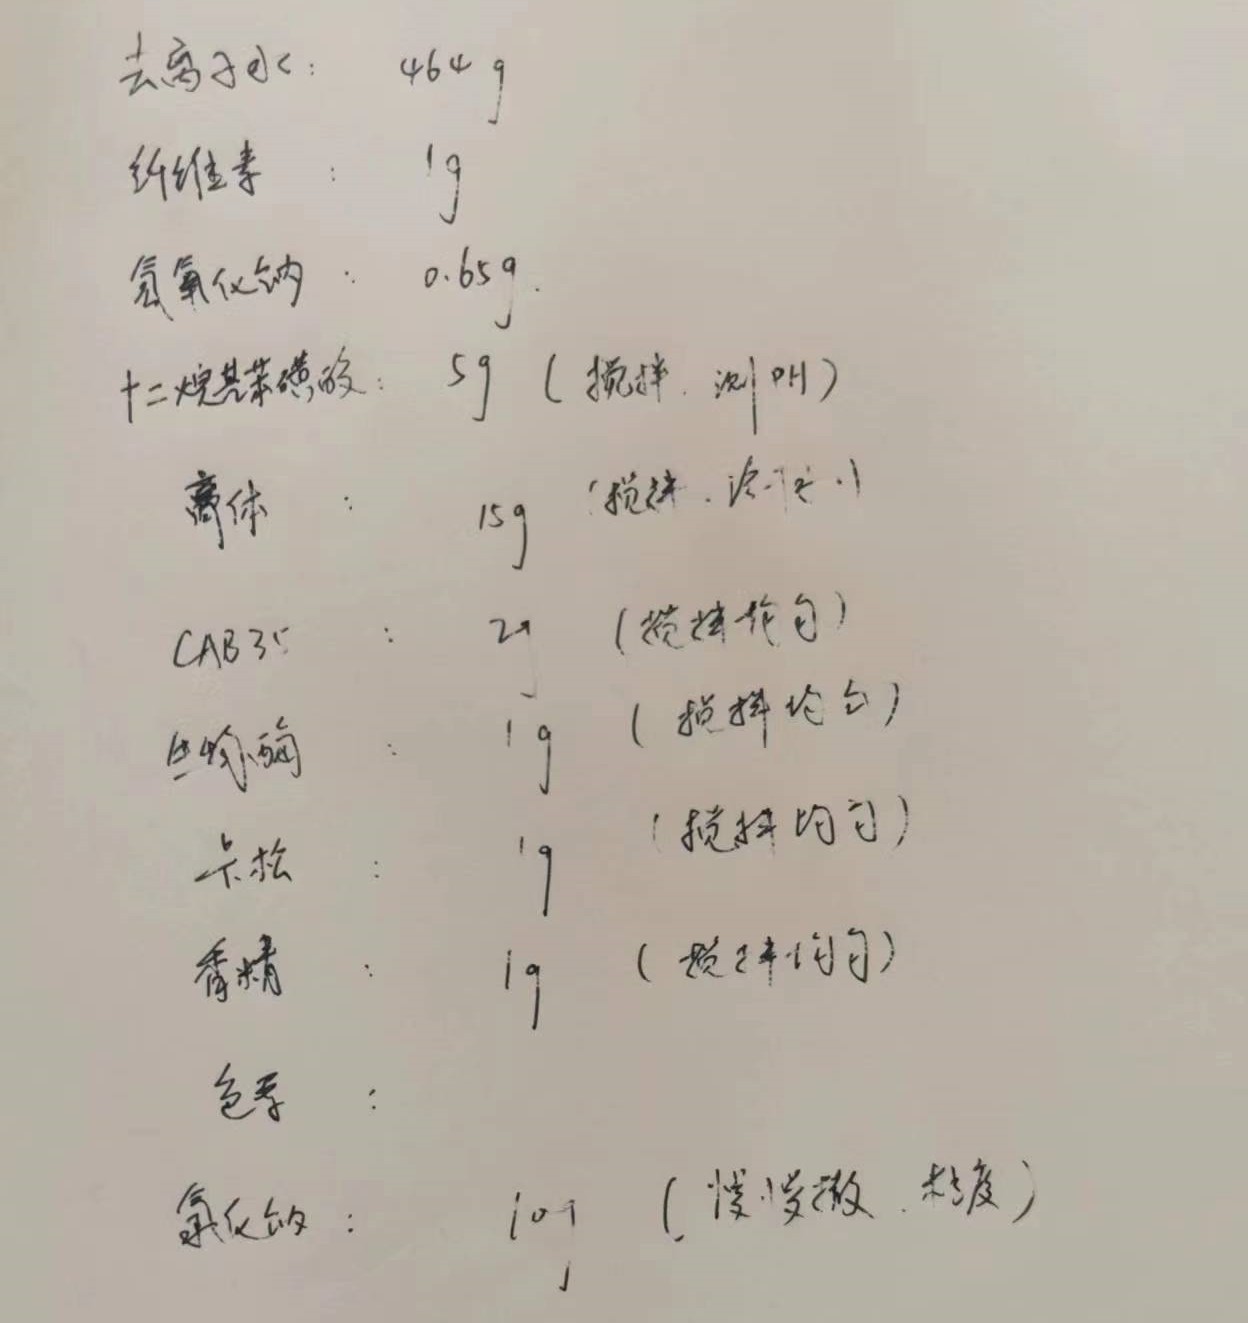 去离子水： 464g
纤维素： 1g
氢氧化钠： 0.65g.
十二烷基苯磺酸： 5g （搅拌.测PH）
离体： 15g （搅拌.
CAB35： 2g （搅拌均匀）
生物酶： 1g （搅拌均匀）
卡松： 1g （搅拌均匀）
香精： 1g （搅拌均匀）
色素：
氯化钠： 10g （慢慢撒.粘度）